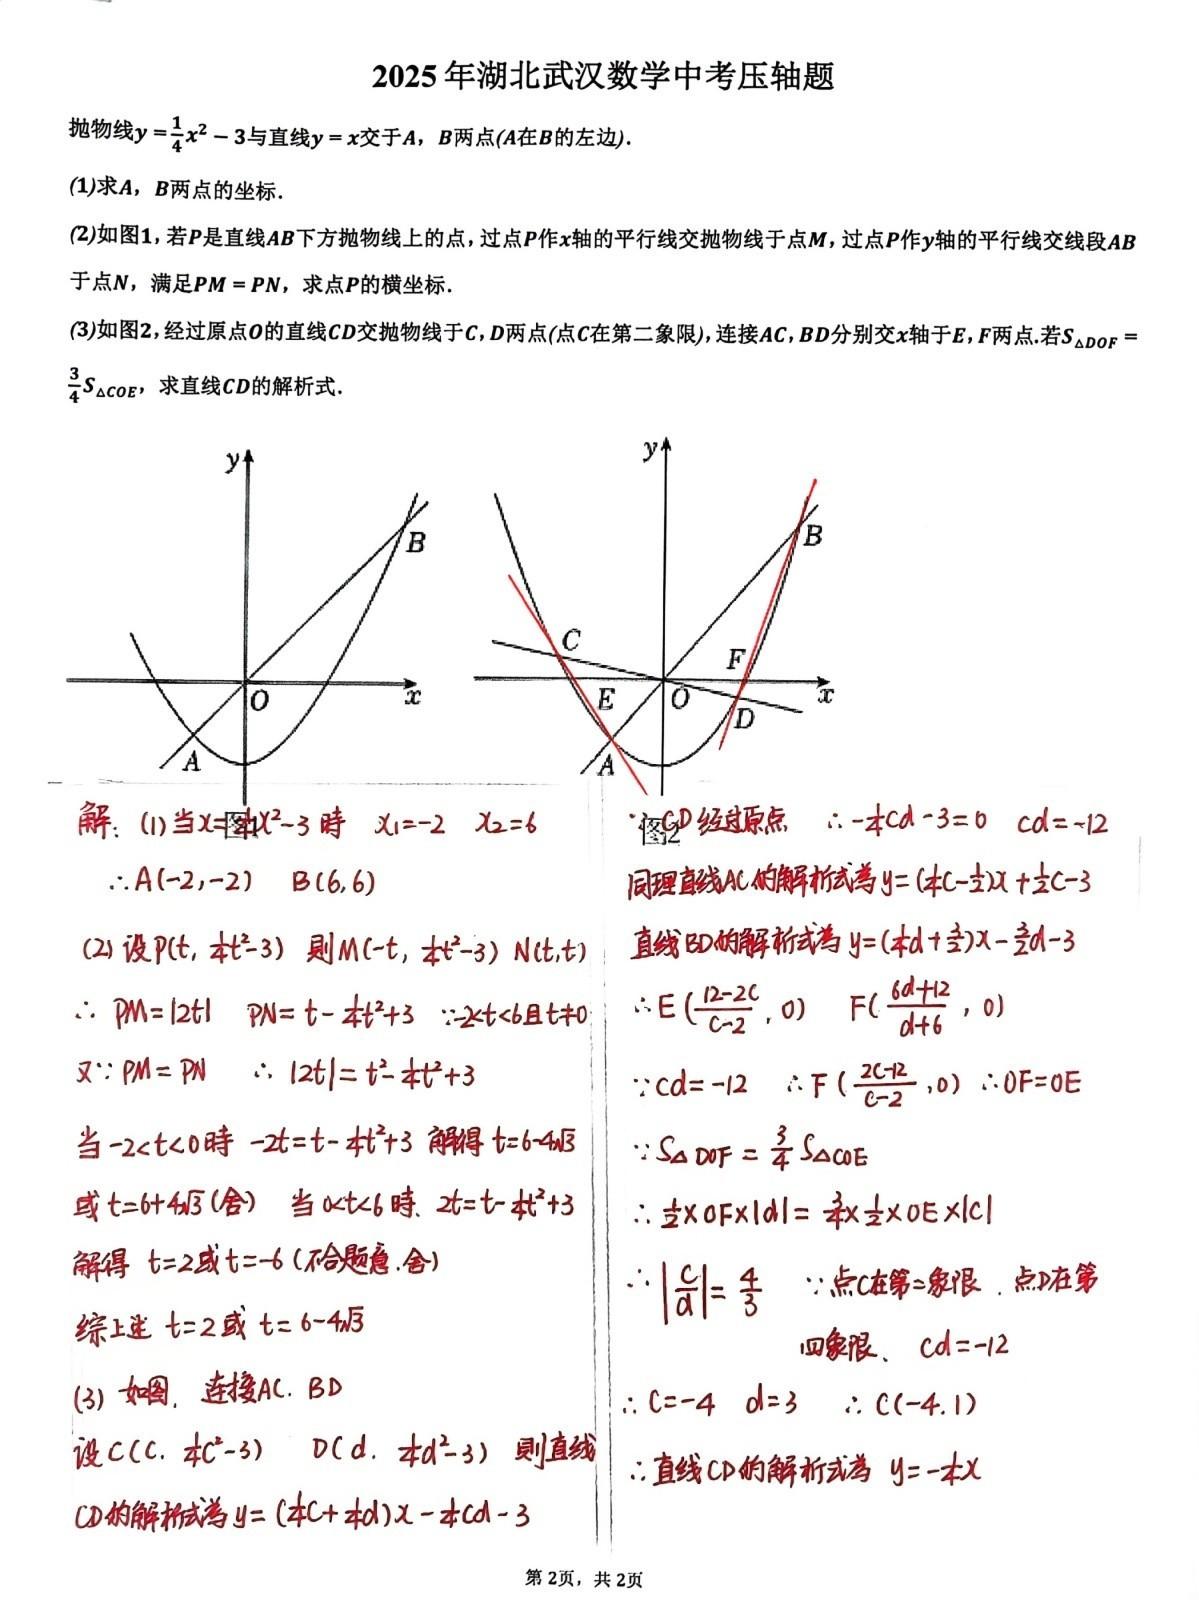 2025年湖北武汉数学中考压轴题
抛物线y=1/4x²-3与直线y=x交于A，B两点(A在B的左边).
(1)求A，B两点的坐标.
(2)如图1,若P是直线AB下方抛物线上的点,过点P作x轴的平行线交抛物线于点M,过点P作y轴的平行线交线段AB
于点N，满足PM=PN，求点P的横坐标.
(3)如图2,经过原点O的直线CD交抛物线于C,D两点(点C在第二象限),连接AC,BD分别交x轴于E,F两点.若S△DOF=
3/4S△COE，求直线CD的解析式.
y
B
O
x
A
图1
y
B
C
F
E
O
x
D
A
图2
解: (1)当x=1/4x²-3時 x₁=-2 x₂=6
∴A(-2,-2) B(6,6)
(2)设P(t, 1/4t²-3) 則M(-t, 1/4t²-3) N(t,t)
∴ PM=|2t| PN=t-1/4t²+3 ∵-2<t<6且t≠0
又∵PM=PN ∴ |2t|=t²-1/4t²+3
当-2<t<0時 -2t=t-1/4t²+3 解得 t=6-4√3
或t=6+4√3(舍) 当0<t<6時. 2t=t-1/4t²+3
解得 t=2或t=-6(不合题意.舍)
综上述 t=2或 t=6-4√3
(3) 如图. 连接AC. BD
设C(C. 1/4C²-3) D(d. 1/4d²-3) 則直线
CD的解析式為y=(1/4C+1/4d)x-1/4cd-3
∵CD经过原点 ∴-1/4cd-3=0 cd=-12
同理直线AC的解析式為y=(1/4C-1/2)x+1/2C-3
直线BD的解析式為y=(1/4d+3/2)x-3/2d-3
∴E(12-2C/C-2, 0) F(6d+12/d+6, 0)
∵cd=-12 ∴F(2C-12/C-2,0) ∴OF=OE
∵S△DOF=3/4S△COE
∴1/2×OF×|d|=3/4×1/2×OE×|C|
∴|C/d|=4/3 ∵点C在第二象限. 点D在第
四象限、 cd=-12
∴C=-4 d=3 ∴C(-4.1)
∴直线CD的解析式為 y=-1/4x
第2页，共2页